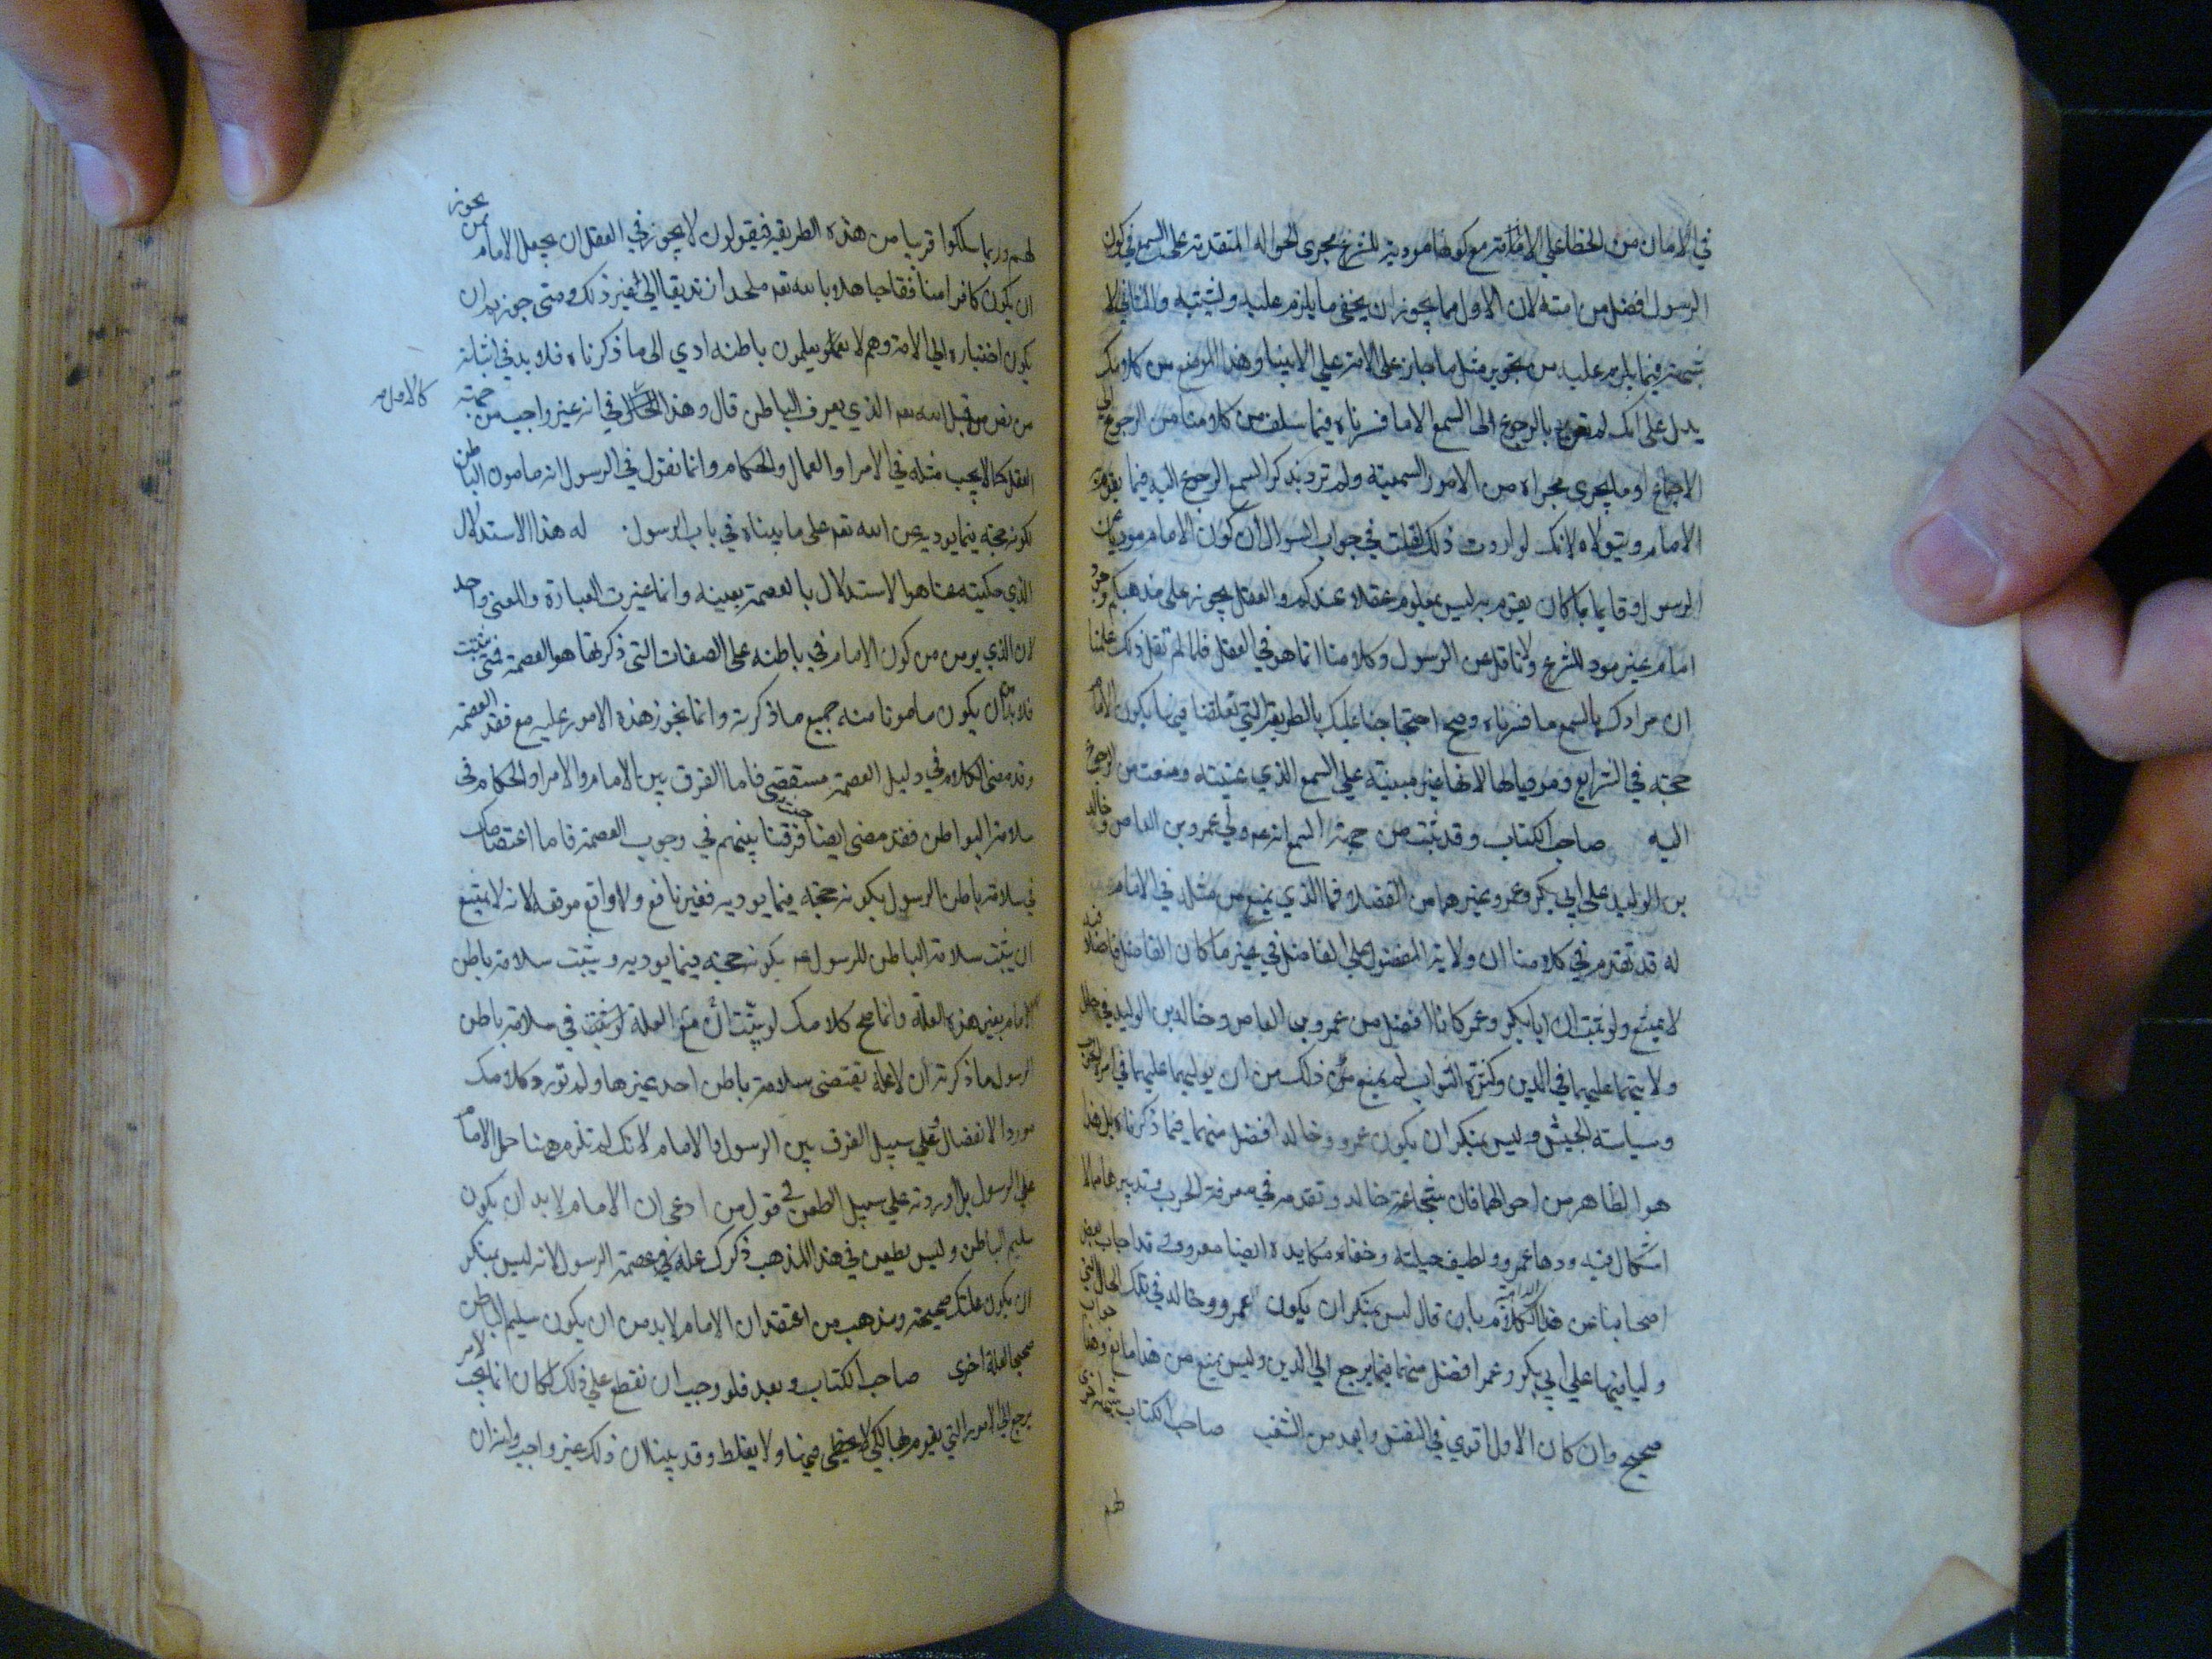 في الامان من الخطا على الامامة مع كونها مودية للشرع مجرى الحوالة المتقدمة على السمع في كون
الرسول افضل من امته لان الاول مما يجوز ان يخفى ما يلزم عليه ويشتبه والثاني لا
شبهة فيما يلزم عليه من تجويز مثل ما جاز على الامة على الانبيا وهذا الموضع من كلامك
يدل على انك لم تعن بالرجوع الى السمع الا ما فسرناه فيما سلف من كلامنا من الرجوع الى
الاجماع او ما يجري مجراه من الامور السمعية ولم ترد بذكر السمع الرجوع اليه فيما يقوم به
الامام ويتولاه لانك لو اردت ذلك لقلت في جواب السوال ان كون الامام موديا عن
الرسول وقايما بما كان يقوم به ليس بمعلوم عقلا عندكم والعقل يجوز على مذهبكم وجود
امام غير مود للشرع ولا ناقل عن الرسول وكلامنا انما هو في العقل فلما لم تقل ذلك علمنا
ان مرادك بالسمع ما فسرناه وصح احتجاجنا عليك بالطريقة التي تعلقنا فيها بكون الامام
حجة في الشرايع ومودياً لها لانها غير مبنية على السمع الذي عنيته ومنعت من الرجوع
اليه صاحب الكتاب وقد ثبت من جهة السمع انه عم ولى عمرو بن العاص وخالد
بن الوليد على ابي بكر وعمر وغيرهما من الفضلا فما الذي يمنع من مثله في الامام
له قد تقدم في كلامنا ان ولاية المفضول على الفاضل في غير ما كان الفاضل فاضلا فيه
لا يمتنع ولو ثبت ان ابا بكر وعمر كانا افضل من عمرو بن العاص وخالد بن الوليد في حال
ولايتهما عليهما في الدين وكثرة الثواب لم يمنع من ذلك من ان يوليهما عليهما في امرة الحرب
وسياسة الجيش وليس بمنكر ان يكون عمرو وخالد افضل منهما فيما ذكرناه بل هذا
هو الظاهر من احوالهما فان شجاعة خالد وتقدمه في معرفة الحرب وتدبيرها مما لا
اشكال فيه ودها عمرو ولطيف حيلته وخفاء مكايده ايضا معروف وقد اجاب بعض
اصحابنا عن هذا الكلام بان قال ليس بمنكر ان يكون عمرو وخالد في تلك الحال التي
وليا فيها على ابي بكر وعمر افضل منهما فيما يرجع الى الدين وليس يمنع من هذا مانع وهذا جواب
صحيح وان كان الاول اقوى في النفس وابعد من الشغب صاحب الكتاب
لهم
لهم وربما سلكوا قريبا من هذه الطريقة فيقولون لا يجوز في العقل ان يجعل الامام من يجوز
ان يكون كافرا منافقا جاهلا بالله تعم ملحدا زنديقا الى غير ذلك ومتى جوز ان
يكون اختياره الى الامة وهم لا يعلمون باطنه ادى الى ما ذكرناه فلا بد في اثباته
من نص من قبل الله تعم الذي يعرف الباطن قال وهذا كالاول في انه غير واجب من جهة
العقل كما لا يجب مثله في الامرا والعمال والحكام وانما نقول في الرسول انه مامون الباطن
لكونه حجة فيما يوديه عن الله تعم على ما بيناه في باب الرسول له هذا الاستدلال
الذي حكيته هنا هو الاستدلال بالعصمة بعينه وانما غيرت العبارة والمعنى واحد
لان الذي يومن من كون الامام في باطنه على الصفات التي ذكرتها هو العصمة فمتى ثبتت
فلا بد من ان يكون مامونا منه جميع ما ذكرته وانما نجوز هذه الامور عليه مع فقد العصمة
وقد مضى الكلام في دليل العصمة مستقصى فاما الفرق بين الامام والامرا والحكام في
سلامة البواطن فقد مضى ايضا حيث فرقنا بينهم في وجوب العصمة فاما اعتصامك
في سلامة باطن الرسول بكونه حجة فيما يوديه فغير نافع ولا واقع موقعه لانه لا يمتنع
ان يثبت سلامة الباطن للرسول عم بكونه حجة فيما يوديه ويثبت سلامة باطن
الامام بغير هذه العلة وانما صح كلامك لو ثبت ان مع العلة في سلامة باطن
الرسول ما ذكرته ان لا علة تقتضي سلامة باطن احد غيرها ولم تورد كلامك
مورد الانفصال على سبيل الفرق بين الرسول والامام لانك لم تلزم هنا حمل الامام
على الرسول بل اوردته على سبيل الطعن في قول من ادعى ان الامام لا بد ان يكون
سليم الباطن وليس يطعن في هذا المذهب ذكرك علة في عصمة الرسول لانه ليس بمنكر
ان يكون علتك صحيحة ومذهب من اعتقد ان الامام لا بد من ان يكون سليم الباطن
صحيحا لعلة اخرى صاحب الكتاب وبعد فلو وجب ان نقطع على ذلك لكان انما يجب لامر
يرجع الى الامور التي يقوم بها لكي لا يخطي فيها ولا يغلط وقد بينا ان ذلك غير واجب وانه ان
كالاول